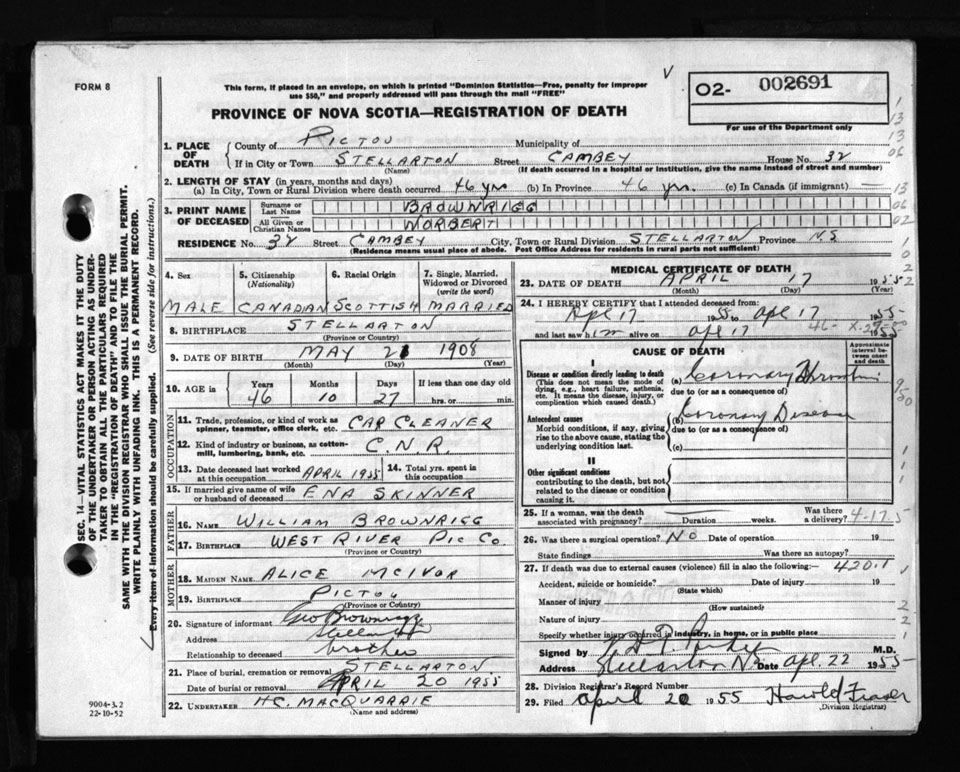 FORM 8
This form, if placed in an envelope, on which is printed "Dominion Statistics—Free, penalty for improper
use $50," and properly addressed will pass through the mail "FREE"
V
O2- 002691
For use of the Department only
PROVINCE OF NOVA SCOTIA—REGISTRATION OF DEATH
1. PLACE OF DEATH
County of PICTOU Municipality of
If in City or Town STELLARTON Street CAMBEY House No. 32
(Name) (If death occurred in a hospital or institution, give the name instead of street and number)
2. LENGTH OF STAY (in years, months and days)
(a) In City, Town or Rural Division where death occurred 46 yrs (b) In Province 46 yrs. (c) In Canada (if immigrant) —
3. PRINT NAME OF DECEASED
Surname or Last Name BROWNRIGG
All Given or Christian Names NORBERT
RESIDENCE No. 32 Street CAMBEY City, Town or Rural Division STELLARTON Province N.S
(Residence means usual place of abode. Post Office Address for residents in rural parts not sufficient)
4. Sex
MALE
5. Citizenship
(Nationality)
CANADIAN
6. Racial Origin
SCOTTISH
7. Single, Married, Widowed or Divorced
(write the word)
MARRIED
8. BIRTHPLACE STELLARTON
(Province or Country)
9. DATE OF BIRTH MAY 21 1908
(Month) (Day) (Year)
10. AGE in
Years Months Days If less than one day old
46 10 27 hrs. or min.
OCCUPATION
11. Trade, profession, or kind of work as
spinner, teamster, office clerk, etc. CAR CLEANER
12. Kind of industry or business, as cotton-
mill, lumbering, bank, etc. C.N.R.
13. Date deceased last worked
at this occupation APRIL 1955
14. Total yrs. spent in
this occupation
15. If married give name of wife
or husband of deceased ENA SKINNER
FATHER
16. NAME WILLIAM BROWNRIGG
17. BIRTHPLACE WEST RIVER PIC CO.
(Province or Country)
MOTHER
18. MAIDEN NAME ALICE MCIVOR
19. BIRTHPLACE PICTOU
(Province or Country)
20. Signature of informant Geo Brownrigg
Address Stellarton
Relationship to deceased brother
21. Place of burial, cremation or removal STELLARTON
Date of burial or removal APRIL 20 1955
22. UNDERTAKER H.C. MACQUARRIE
(Name and Address)
MEDICAL CERTIFICATE OF DEATH
23. DATE OF DEATH APRIL 17 1955
(Month) (Day) (Year)
24. I HEREBY CERTIFY that I attended deceased from:
Apl 17 1955 to apl 17 1955
and last saw him alive on apl 17 1955
CAUSE OF DEATH
Approximate interval between onset and death
I
Disease or condition directly leading to death
(This does not mean the mode of dying, e.g., heart failure, asthenia, etc. It means the disease, injury, or complication which caused death.)
(a) Coronary Thrombosis
due to (or as a consequence of)
Antecedent causes
Morbid conditions, if any, giving rise to the above cause, stating the underlying condition last.
(b) Coronary Disease
due to (or as a consequence of)
(c)
II
Other significant conditions
contributing to the death, but not related to the disease or condition causing it.
25. If a woman, was the death associated with pregnancy? Duration weeks. Was there a delivery?
4-17.5
26. Was there a surgical operation? NO Date of operation 19
State findings Was there an autopsy?
27. If death was due to external causes (violence) fill in also the following:— 420.1
Accident, suicide or homicide? Date of injury 19
(State which)
Manner of injury
(How sustained)
Nature of injury
Specify whether injury occurred in industry, in home, or in public place
Signed by M.D.
Address Stellarton NS Date apl. 22 1955
28. Division Registrar's Record Number
29. Filed april 20 1955 Harold Fraser
(Division Registrar)
SEC. 14—VITAL STATISTICS ACT MAKES IT THE DUTY
OF THE UNDERTAKER OR PERSON ACTING AS UNDER-
TAKER TO OBTAIN ALL THE PARTICULARS REQUIRED
IN THE "REGISTRATION OF DEATH" AND TO FILE THE
SAME WITH THE DIVISION REGISTRAR WHO SHALL ISSUE THE BURIAL PERMIT.
WRITE PLAINLY WITH UNFADING INK. THIS IS A PERMANENT RECORD.
Every item of information should be carefully supplied. (See reverse side for instructions.)
9004-3.2
22-10-52